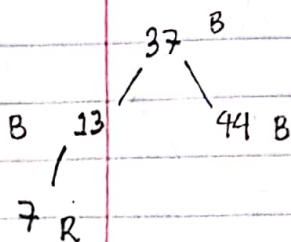 37 B
B 13 44 B
7 R